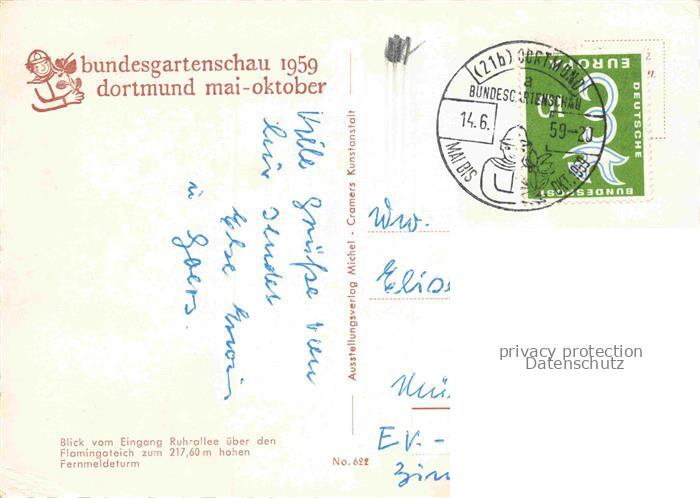 bundesgartenschau 1959
dortmund mai-oktober
Viele Grüße von
hier sendet
Else Erwin
u
Blick vom Eingang Ruhrallee über den
Flamingoteich zum 217,60 m hohen
Fernmeldeturm
No. 622
Ausstellungsverlag Michel - Cramers Kunstanstalt
(21b) DORTMUND
a
BUNDESGARTENSCHAU
14.6.
59-20
MAI BIS
DEUTSCHE
BUNDESPOST
EUROPA
10
Ww.
Elis
Ev.-
privacy protection
Datenschutz